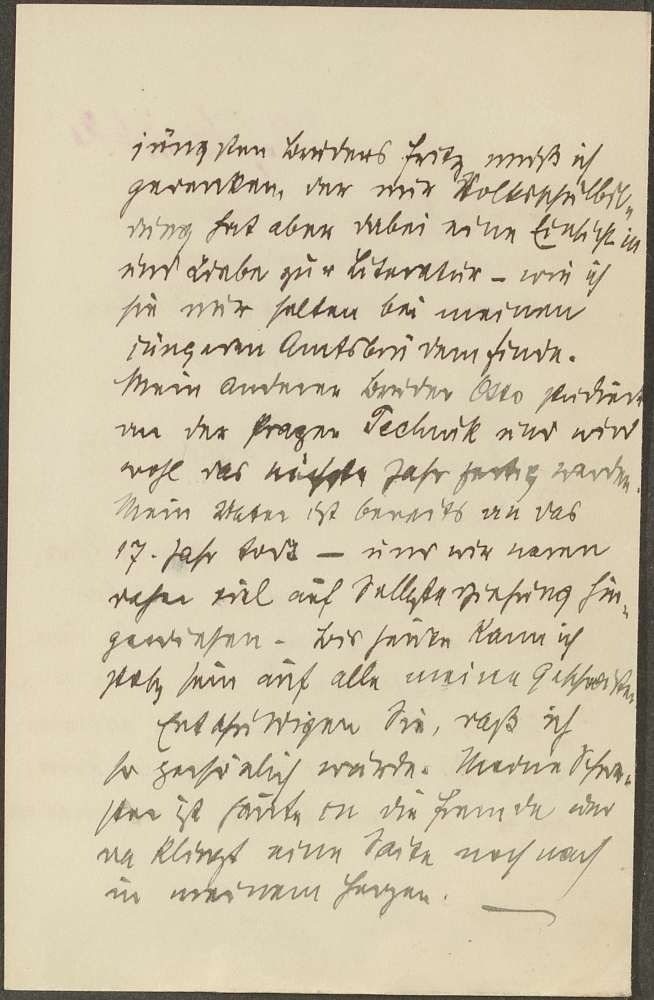 jüngsten Bruders Fritz muß ich
gedenken, der nur Volksschulbil-
dung hat aber dabei eine Einsicht in
und Liebe zur Literatur – wie ich
sie nur selten bei meinen
jüngeren Amtsbrüdern finde.
Mein anderer Bruder Otto studiert
an der Prager Technik und wird
wohl das nächste Jahr fertig werden.
Mein Vater ist bereits an das
17. Jahr todt – und wir waren
daher viel auf Selbsterziehung hin-
gewiesen – Bis heute kann ich
stolz sein auf alle meine Geschwister
Entschuldigen Sie, daß ich
so persönlich wurde. Meine Schwe-
ster ist heute in die Fremde oder
da klingt eine Saite noch nach
in meinem Herzen.